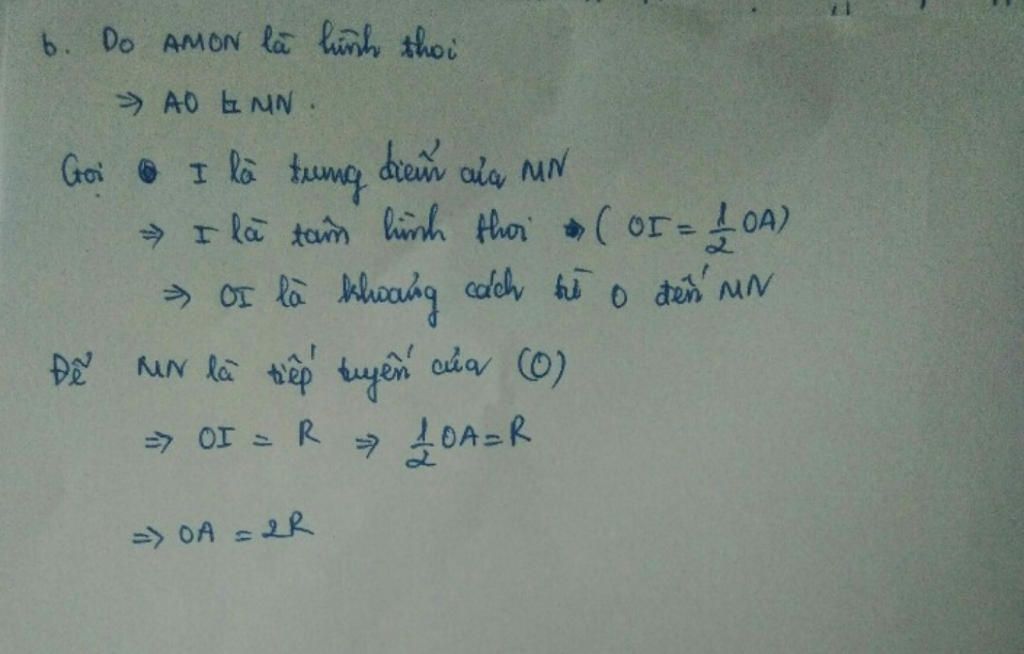 b. Do AMON là hình thoi
⇒ AO ⊥ MN.
Gọi I là trung điểm của MN
⇒ I là tâm hình thoi (OI = 1/2 OA)
⇒ OI là khoảng cách từ O đến MN
Để MN là tiếp tuyến của (O)
⇒ OI = R ⇒ 1/2 OA = R
⇒ OA = 2R